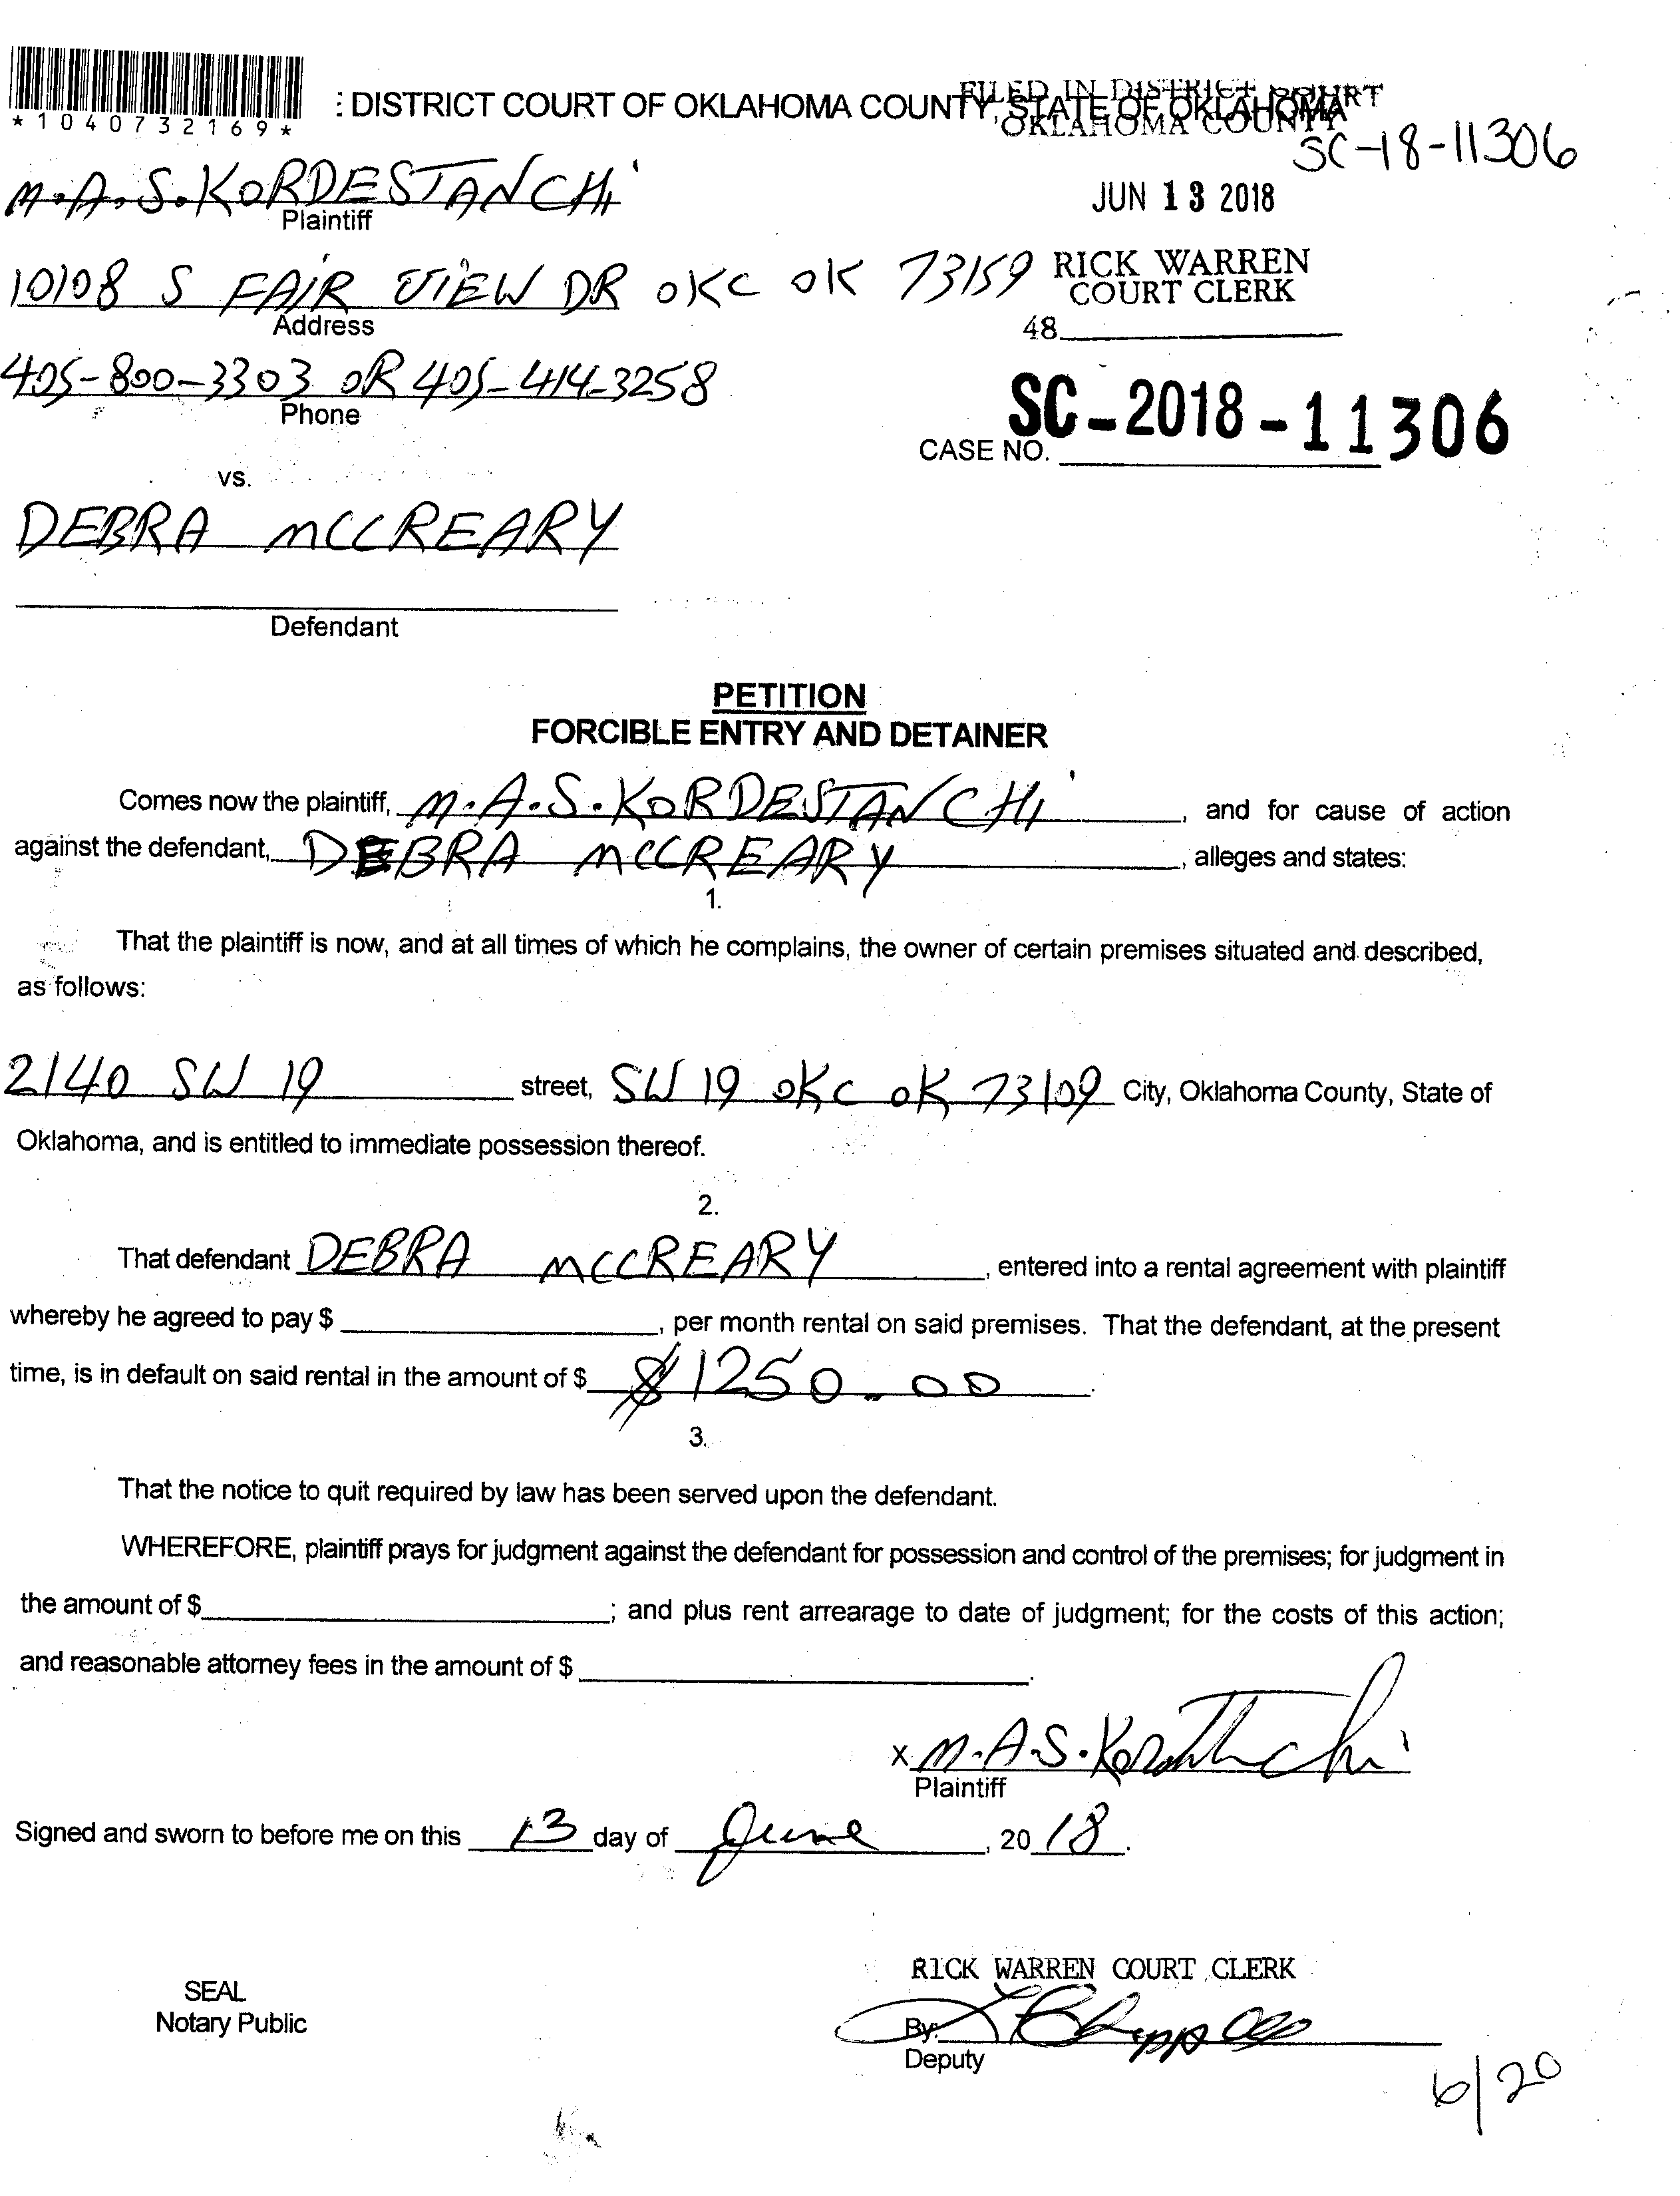 *1040732169*
: DISTRICT COURT OF OKLAHOMA COUNTY, STATE OF OKLAHOMA
FILED IN DISTRICT COURT
OKLAHOMA COUNTY
SC-18-11306
M.A.S. KORDESTANCHi
Plaintiff
JUN 13 2018
10108 S FAIR VIEW DR OKC OK 73159
Address
RICK WARREN
COURT CLERK
48
405-800-3303 OR 405-414-3258
Phone
SC-2018-11306
CASE NO.
vs.
DEBRA MCCREARY
Defendant
PETITION
FORCIBLE ENTRY AND DETAINER
Comes now the plaintiff, M.A.S. KORDESTANCHi, and for cause of action
against the defendant, DEBRA MCCREARY, alleges and states:
1.
That the plaintiff is now, and at all times of which he complains, the owner of certain premises situated and described,
as follows:
2140 SW 19 street, SW 19 OKC OK 73109 City, Oklahoma County, State of
Oklahoma, and is entitled to immediate possession thereof.
2.
That defendant DEBRA MCCREARY, entered into a rental agreement with plaintiff
whereby he agreed to pay $, per month rental on said premises. That the defendant, at the present
time, is in default on said rental in the amount of $ $1250.00.
3.
That the notice to quit required by law has been served upon the defendant.
WHEREFORE, plaintiff prays for judgment against the defendant for possession and control of the premises; for judgment in
the amount of $; and plus rent arrearage to date of judgment; for the costs of this action;
and reasonable attorney fees in the amount of $.
X M.A.S.
Plaintiff
Signed and sworn to before me on this 13 day of June, 2018.
RICK WARREN COURT CLERK
SEAL
Notary Public
By:
Deputy
6/20